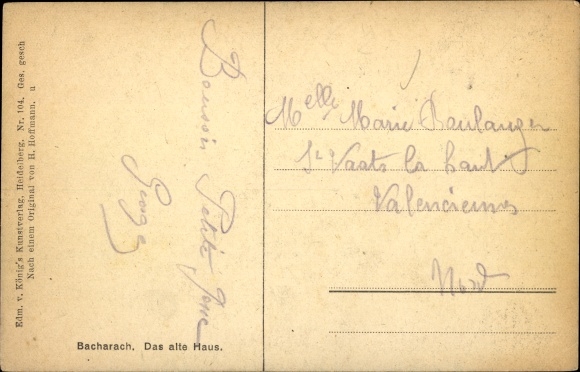 Edm. v. König's Kunstverlag, Heidelberg. Nr. 104. Ges. gesch
Nach einem Original von H. Hoffmann. u
Bacharach. Das alte Haus.
Bonsoir Petite
George
Melle Marie Boulanger
St Vaast la haut
Valenciennes
Nord